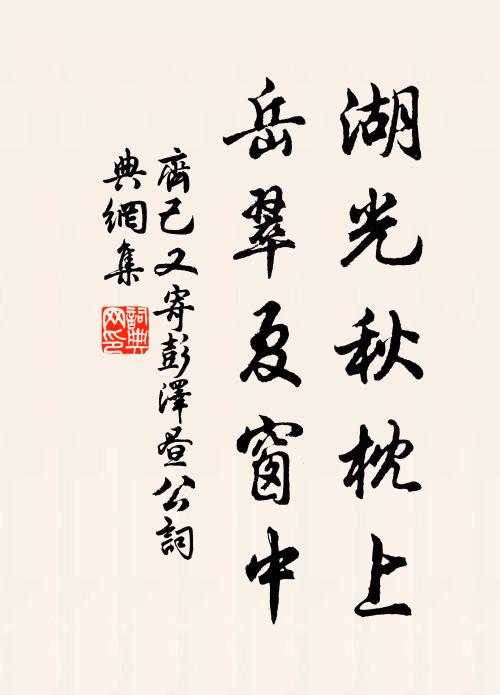 湖光秋枕上
岳翠夏窗中
齊己又寄彭澤晝公詞
典網集
詞典
网印